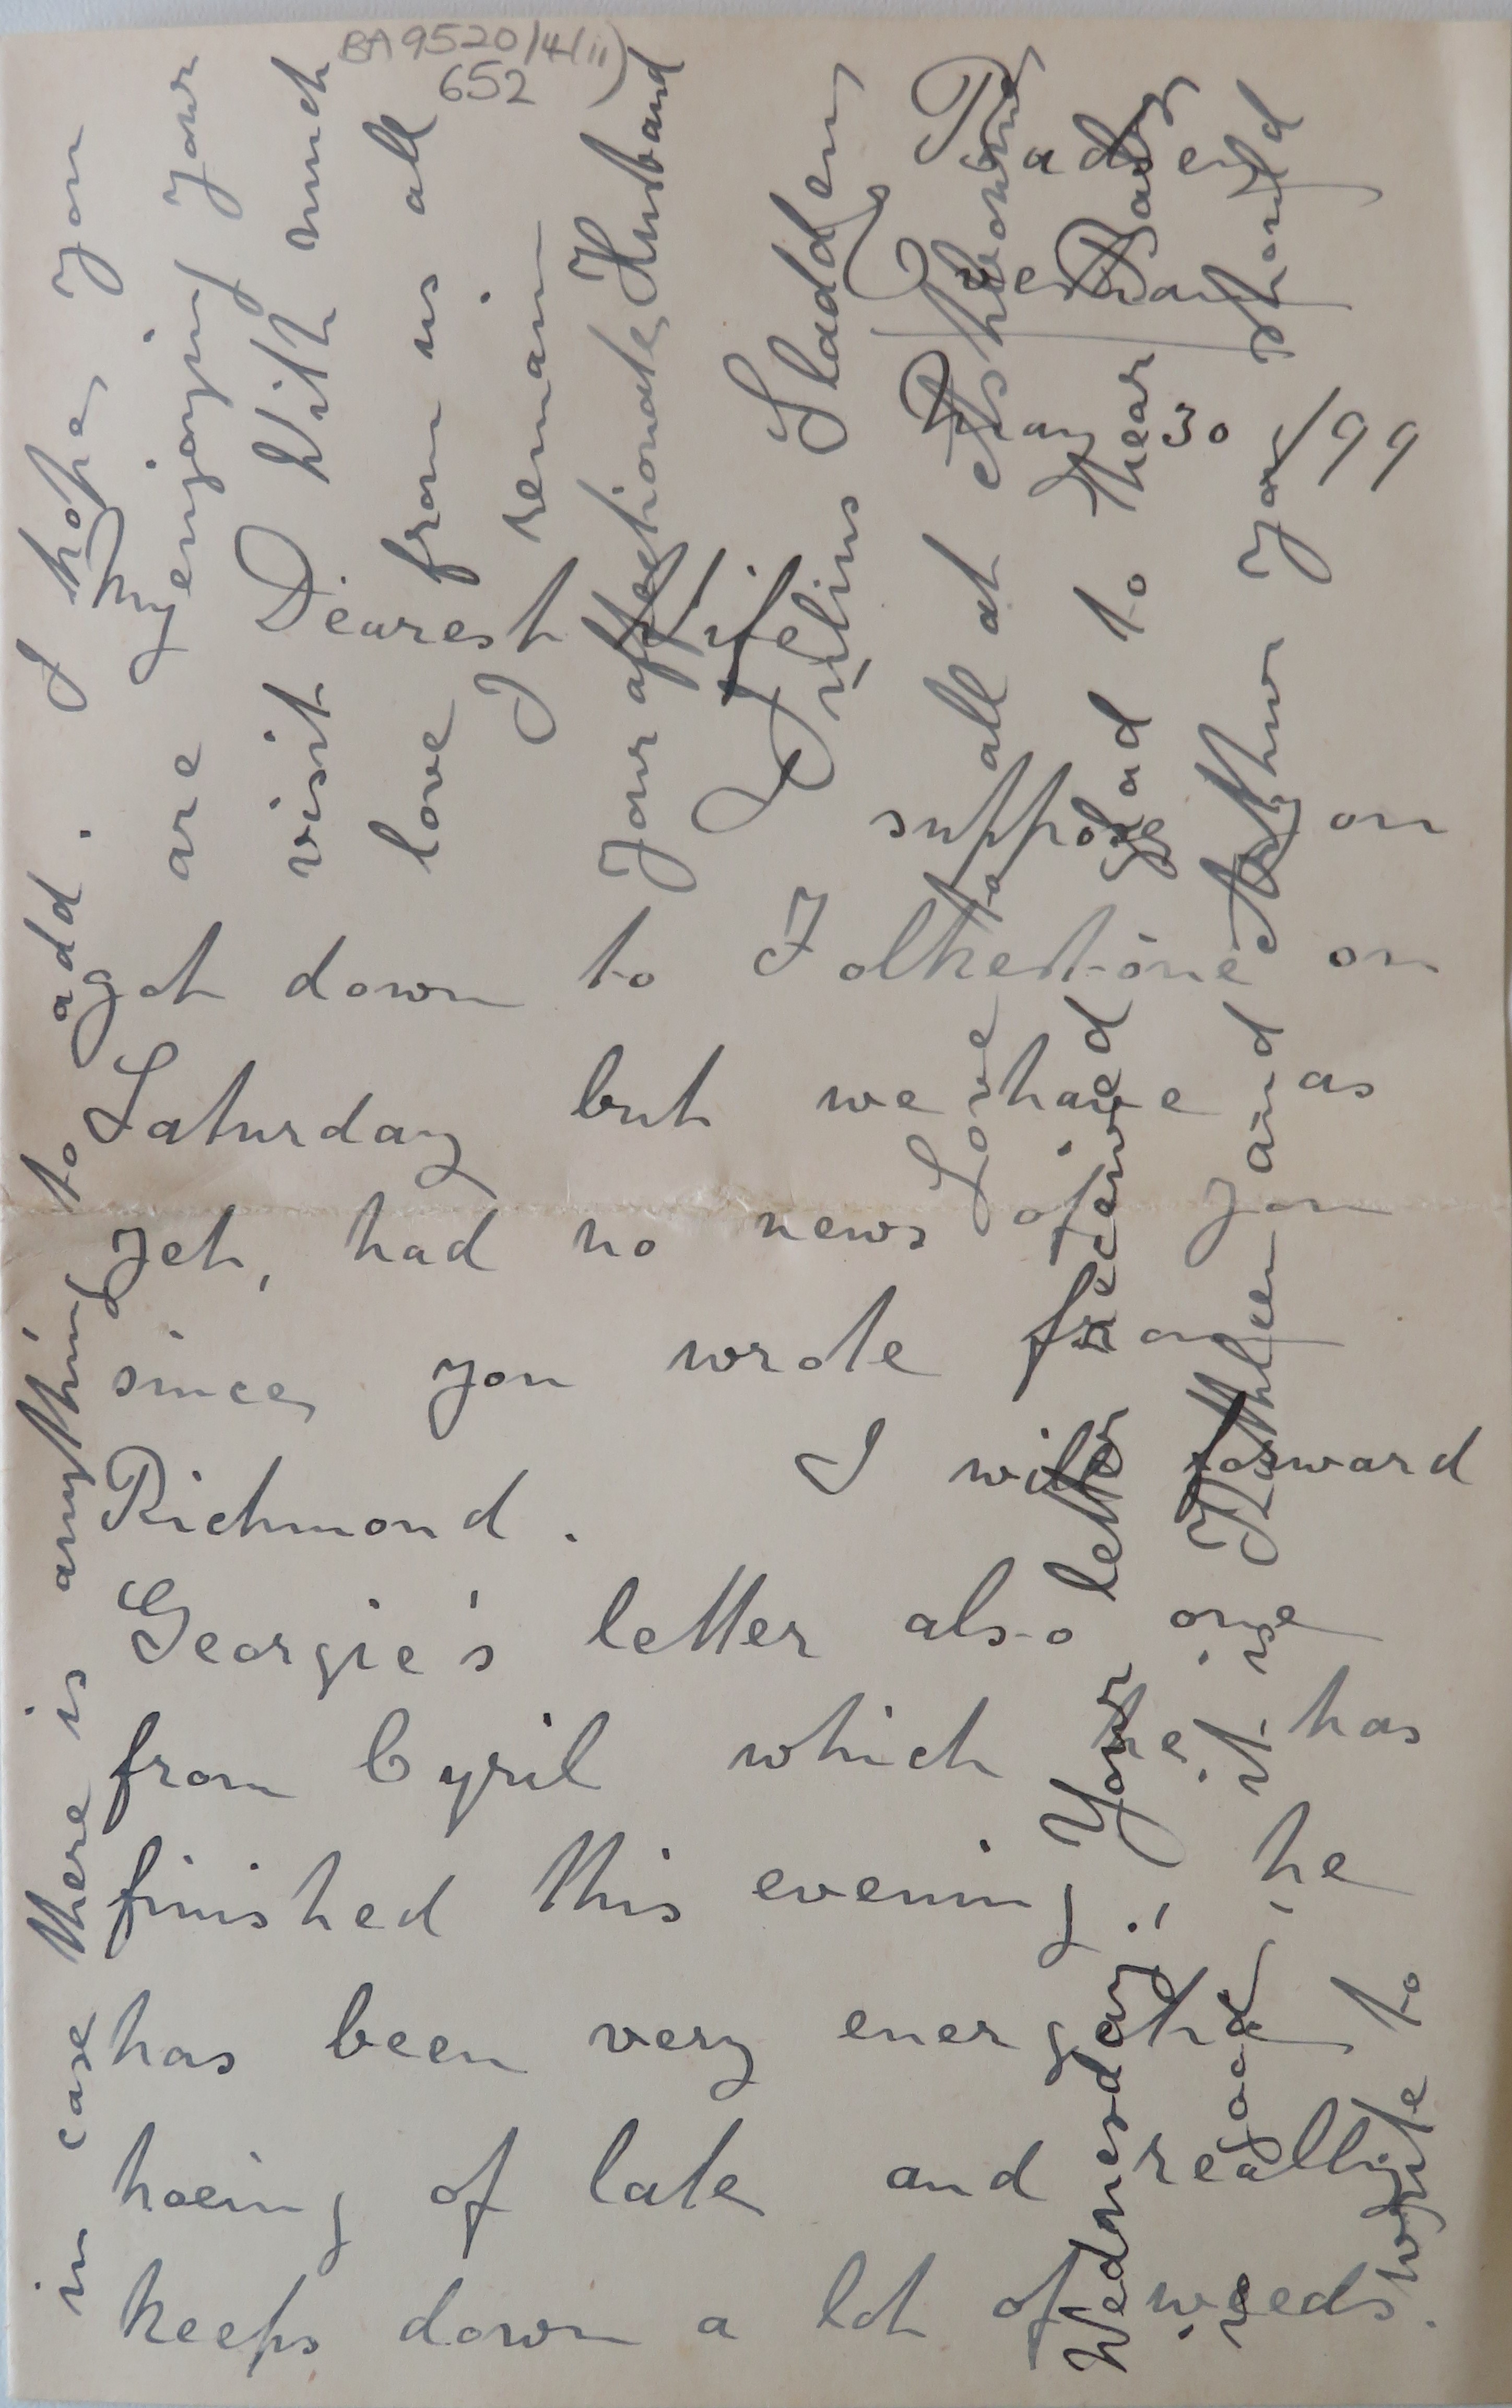 BA9520/4/(ii)
652
Badsey
Evesham
May 30/99
My Dearest Wife
I suppose you
got down to Folkestone on
Saturday but we have as
yet, had no news of you
since you wrote from
Richmond. I will forward
Georgie's letter also one
from Cyril which he has
finished this evening; he
has been very energetic
hoeing of late and really
keeps down a lot of weeds.
in case there is anything to add. I hope you
are enjoying your
visit With much
love from us all
I remain
Your affectionate Husband
Julius Sladden
Love to all at
Wednesday. Your letter received glad to hear Baby
is good, it is Kathleen and Arthur you should
write to